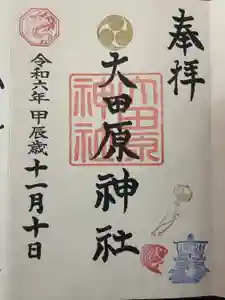 奉拝
大田原神社
令和六年 甲辰歳 十一月十日
大田原
神社